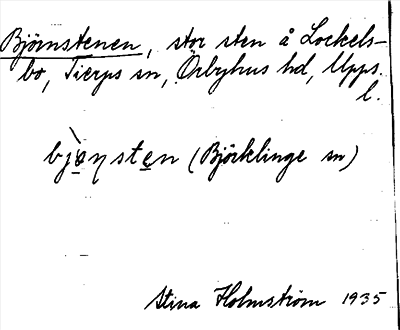 Björnstenen, stor sten å Lockels-
bo, Tierps sn, Örbyhus hd, Upps.
l.
bjɵ̀ṇsten (Björklinge sn)
Stina Holmström 1935